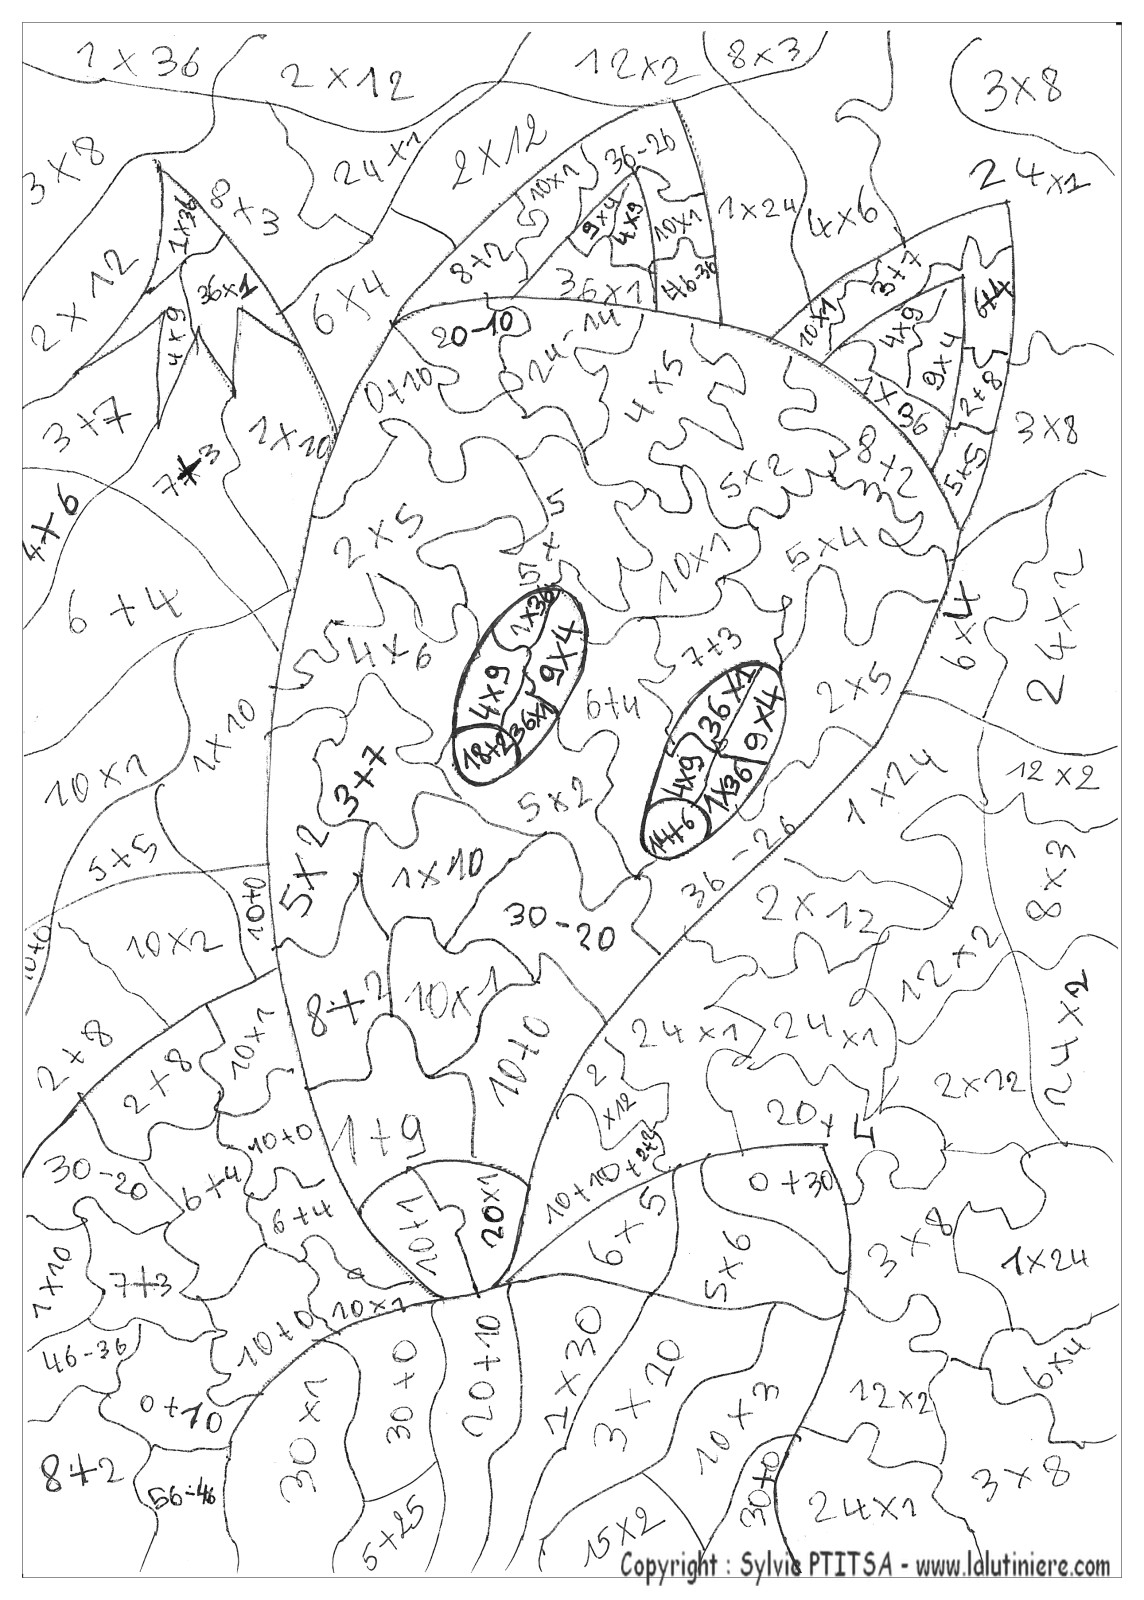 1 x 36
2 x 12
12 x 2
8 x 3
3 x 8
3 x 8
24 x 1
2 x 12
36-26
24 x 1
8 x 3
1 x 36
10 x 1
9 x 4
4 x 9
10 x 1
1 x 24
4 x 6
2 x 12
36 x 1
6 x 4
8+2
36 x 1
46-36
3+7
6+4
4 x 9
20-10
24-14
10 x 1
4 x 9
9 x 4
3+7
0+10
4 x 5
1 x 36
2+8
3 x 8
7+3
1 x 10
8+2
5+5
5 x 2
4 x 6
2 x 5
5 x 5
10 x 1
5 x 4
6+4
6 x 4
24 x 2
4 x 6
1 x 36
9 x 4
7+3
4 x 9
6+4
36 x 1
2 x 5
1 x 10
36 x 1
9 x 4
10 x 1
18+2
4 x 9
1 x 36
1 x 24
12 x 2
3+7
5 x 2
14+6
5+5
5 x 2
1 x 10
36-26
8 x 3
10+0
10 x 2
10+0
30-20
2 x 12
12 x 2
8+2
10 x 1
10+0
24 x 1
24 x 1
24 x 2
2+8
2+8
10 x 1
2 x 12
2 x 12
1+9
20+4
10+0
30-20
6+4
6+4
10+1
20 x 1
10+10+2+2
6 x 5
0+30
3 x 8
1 x 24
1 x 10
7+3
5 x 6
10+0
10 x 1
46-36
30+0
20+10
1 x 30
3 x 10
6 x 4
0+10
30 x 1
10 x 3
12 x 2
8+2
56-46
5+25
15 x 2
30+0
24 x 1
3 x 8
Copyright : Sylvie PTITSA - www.lalutiniere.com